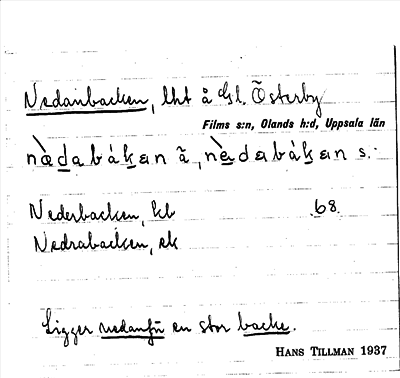 Nedanbacken, lht å Gl. Österby
Films s:n, Olands h:d, Uppsala län
nædabákan ã, nædabákans s.
Nederbacken, kb 68
Nedrabacken, ek
Ligger nedanför en stor backe.
HANS TILLMAN 1937